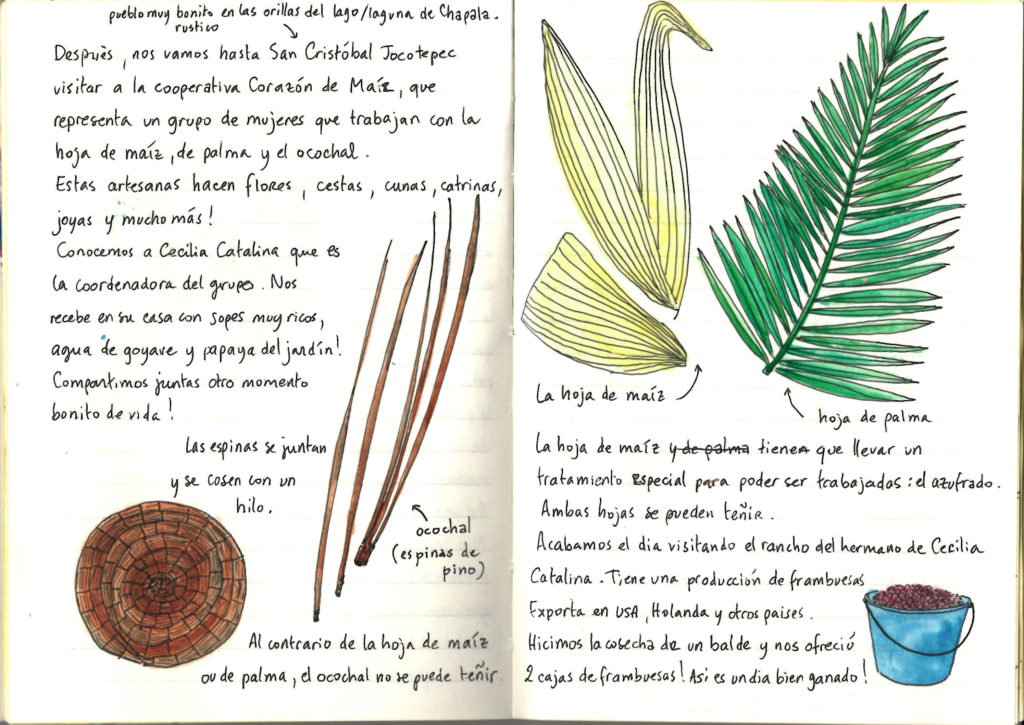 pueblo muy bonito en las orillas del lago/laguna de Chapala.
rustico
Despuès, nos vamos hasta San Cristóbal Jocotepec
visitar a la cooperativa Corazón de Maíz, que
representa un grupo de mujeres que trabajan con la
hoja de maíz, de palma y el ocochal.
Estas artesanas hacen flores, cestas, cunas, catrinas,
joyas y mucho más!
Conocemos a Cecilia Catalina que es
la coordenadora del grupo. Nos
recebe en su casa con sopes muy ricos,
agua de goyave y papaya del jardín!
Compartimos juntas otro momento
bonito de vida!
Las espinas se juntan
y se cosen con un
hilo.
ocochal
(espinas de
pino)
Al contrario de la hoja de maíz
ou de palma, el ocochal no se puede teñir.
La hoja de maíz
hoja de palma
La hoja de maíz y de palma tienen que llevar un
tratamiento Especial para poder ser trabajadas : el azufrado.
Ambas hojas se pueden teñir.
Acabamos el dia visitando el rancho del hermano de Cecilia
Catalina. Tiene una producción de frambuesas
Exporta en USA, Holanda y otros paises.
Hicimos la cosecha de un balde y nos ofreció
2 cajas de frambuesas! Asi es un dia bien ganado!